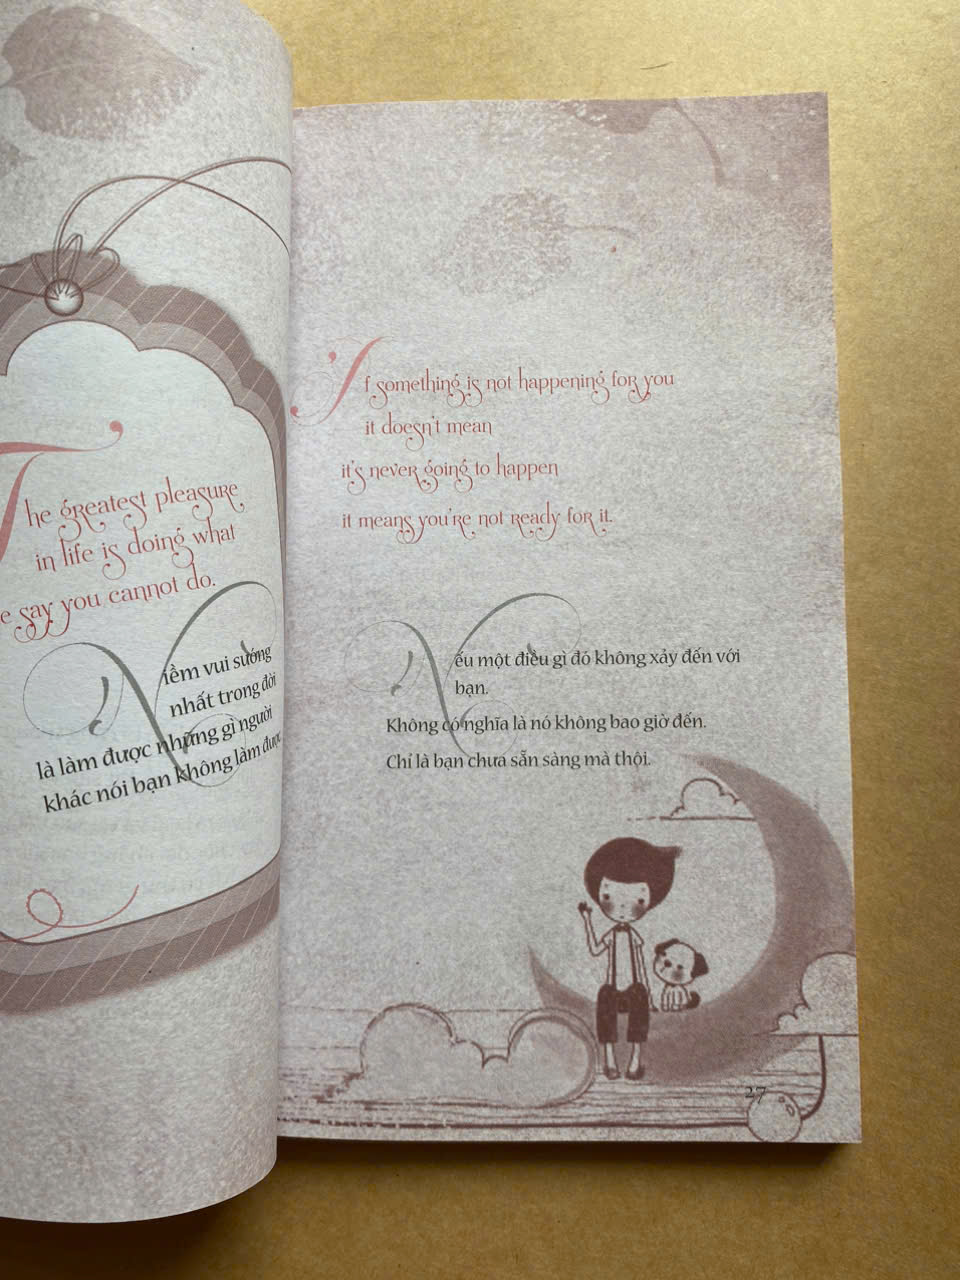 The greatest pleasure
in life is doing what
say you cannot do.
Niềm vui sướng
nhất trong đời
là làm được những gì người
khác nói bạn không làm được
If something is not happening for you
it doesn't mean
it's never going to happen
it means you're not ready for it.
Nếu một điều gì đó không xảy đến với
bạn.
Không có nghĩa là nó không bao giờ đến.
Chỉ là bạn chưa sẵn sàng mà thôi.
27